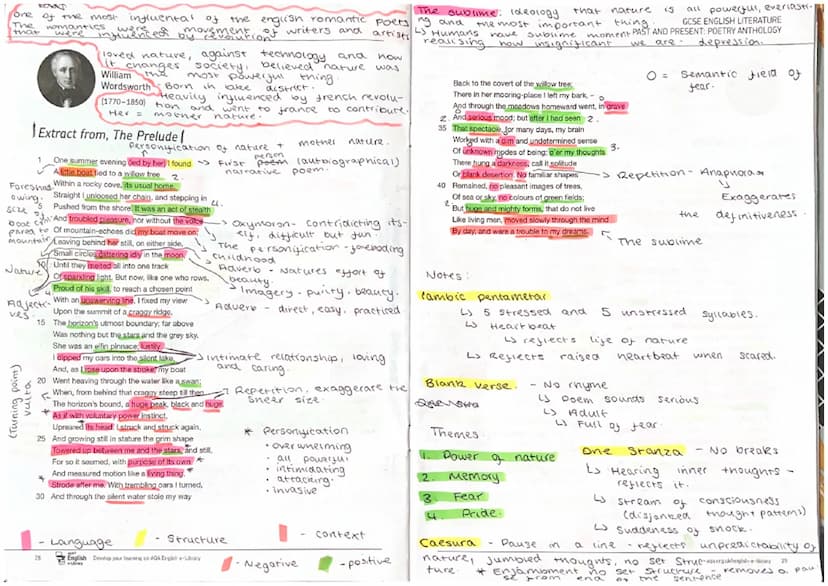 one of the most influential of the english romantic poets
The romantics were a movement of writers and artists
that were influenced by
loved nature, against technology and how
it changes society, believed nature was
the most powerful thing.
William
Wordsworth
(1770–1850)
Born in lake district.
Heavily influenced by french revolu-
tion and went to france to contribute.
Her = mother nature.
Extract from, The Prelude
Personification of nature + mother nature.
1 One summer evening (led by her) I found
→ First person poem (autobiographical)
narrative poem.
A little boat tied to a willow tree 2.
Within a rocky cove, its usual home.
Straight I unloosed her chain, and stepping in
5 Pushed from the shore. It was an act of stealth
And troubled pleasure, nor without the voice
Of mountain-echoes did my boat move on;
Leaving behind her still, on either side,
Small circles glittering idly in the moon,
10 Until they melted all into one track
Of sparkling light. But now, like one who rows,
Proud of his skill, to reach a chosen point
With an unswerving line, I fixed my view
Upon the summit of a craggy ridge,
15 The horizon's utmost boundary; far above
Was nothing but the stars and the grey sky.
She was an elfin pinnace; lustily
I dipped my oars into the silent lake,
And, as I rose upon the stroke, my boat
20 Went heaving through the water like a swan;
When, from behind that craggy steep till then
The horizon's bound, a huge peak, black and huge,
As if with voluntary power instinct,
Upreared its head. I struck and struck again,
25 And growing still in stature the grim shape
Towered up between me and the stars, and still,
For so it seemed, with purpose of its own
And measured motion like a living thing,
Strode after me. With trembling oars I turned,
30 And through the silent water stole my way
Foreshad
owing.
size of
boat com
pared to
mountain
Nature
Adjecti
ves.
(Turning point)
volta
→ oxymoron - contridicting its-
elf, difficult but fun.
The personification - foreboding
childhood
Adverb - natures effort of
beauty.
→ Imagery - purity, beauty.
Adverb - direct, easy, practiced
→ Intimate relationship, loving
and caring.
→ Repetition, exaggerate the
sheer size.
* Personification
• overwhelming
• all powerful
• intimidating
• attacking.
• invasive
- Language
- Structure
- Context
- Negative
- positive
28
English
Develop your learning on AQA English e-Library
The sublime: Ideology that nature is all powerful, everlasti-
ng and the most important thing.
GCSE ENGLISH LITERATURE
↳ Humans have sublime moment
PAST AND PRESENT: POETRY ANTHOLOGY
realising how insignificant we are - depression.
O = Semantic field of
fear.
Back to the covert of the willow tree;
There in her mooring-place I left my bark, -
And through the meadows homeward went, in grave
2. And serious mood; but after I had seen 2.
35 That spectacle, for many days, my brain
Worked with a dim and undetermined sense
Of unknown modes of being; o'er my thoughts 3.
There hung a darkness, call it solitude
Or blank desertion. No familiar shapes
40 Remained, no pleasant images of trees,
Of sea or sky, no colours of green fields;
2 But huge and mighty forms, that do not live
Like living men, moved slowly through the mind
By day, and were a trouble to my dreams.
→ Repetition - Anaphora
Exaggerates
the definitiveness.
The sublime
Notes:
Iambic pentametar
↳ 5 stressed and 5 unstressed syllables.
↳ Heartbeat
↳ reflects life of nature
↳ Reflects raised heartbeat when scared.
Blank verse. - No rhyme
↳ Poem sounds serious
↳ Adult
↳ Full of fear.
Themes
1. Power of nature
2. Memory
3. Fear
4. Pride.
One Stanza - No breaks
↳ Hearing inner thoughts -
reflects it.
↳ Stream of consciousness
(disjointed thought patterns)
↳ Suddeness of shock.
Caesura - Pause in a line - reflects unpredictability of
nature, jumbled thoughts, no set struc-
ture * Enjambment no set structure - removes a pau
se from end of the sentence
29